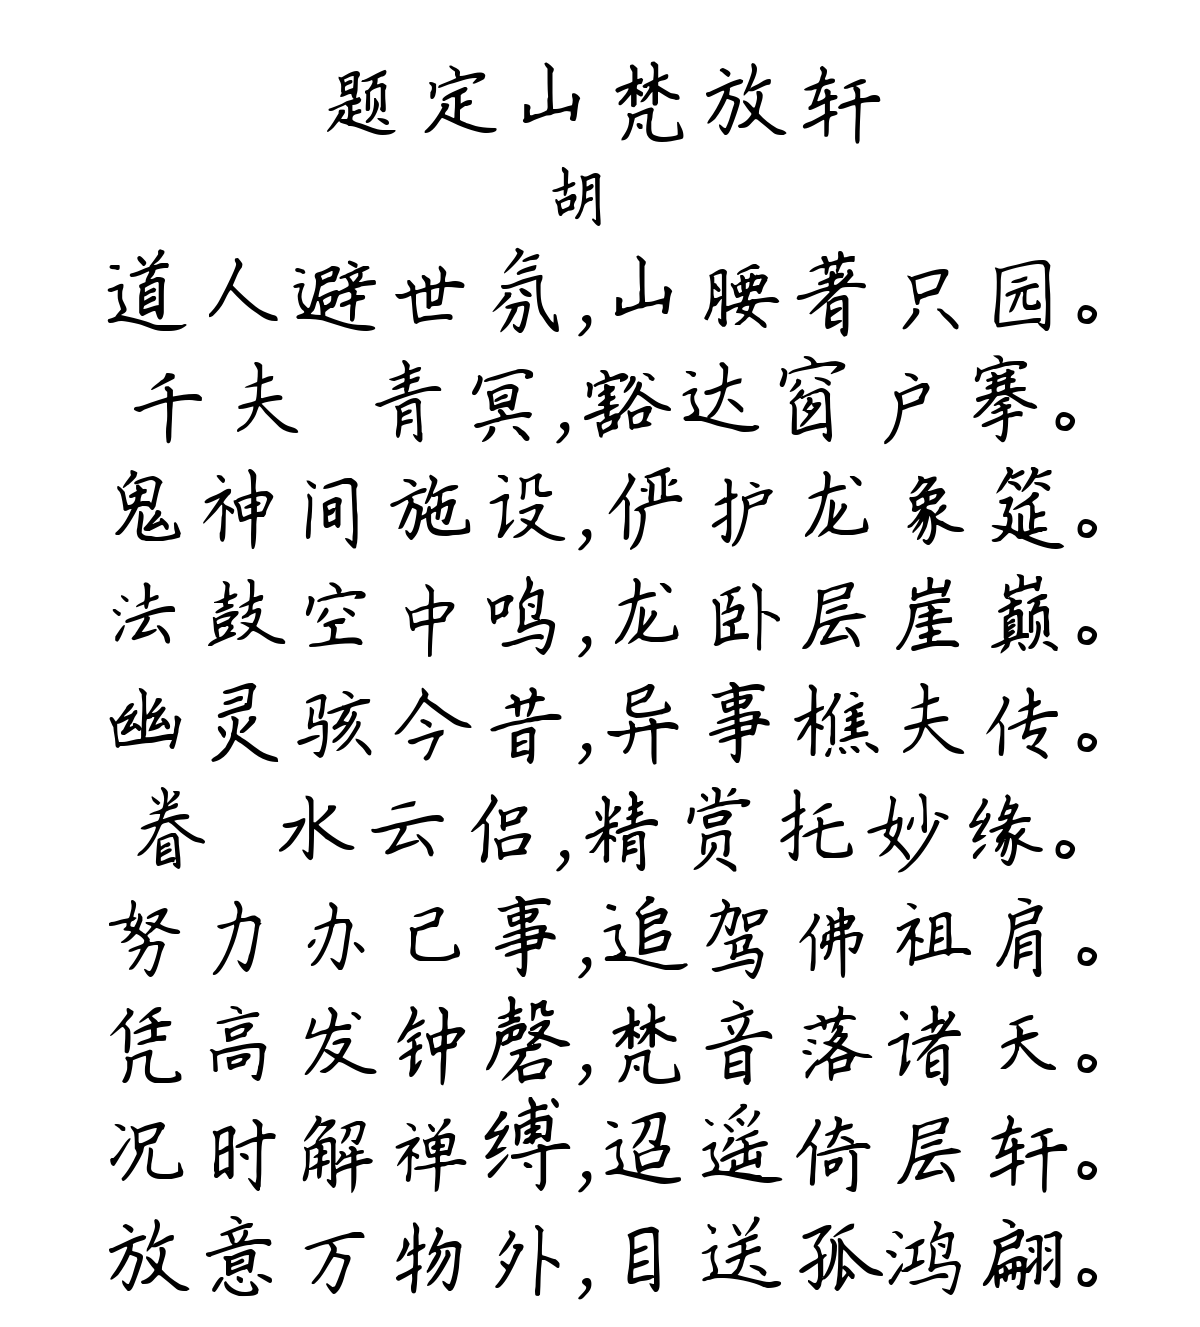 题定山梵放轩
胡
道人避世氛,山腰著只园。
千夫 青冥,豁达窗户搴。
鬼神间施设,俨护龙象筵。
法鼓空中鸣,龙卧层崖巅。
幽灵骇今昔,异事樵夫传。
眷 水云侣,精赏托妙缘。
努力办己事,追驾佛祖肩。
凭高发钟磬,梵音落诸天。
况时解禅缚,迢遥倚层轩。
放意万物外,目送孤鸿翩。